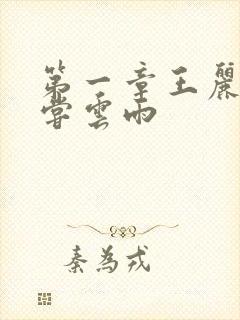 第一章王麗
嘗雲雨
秦為戎